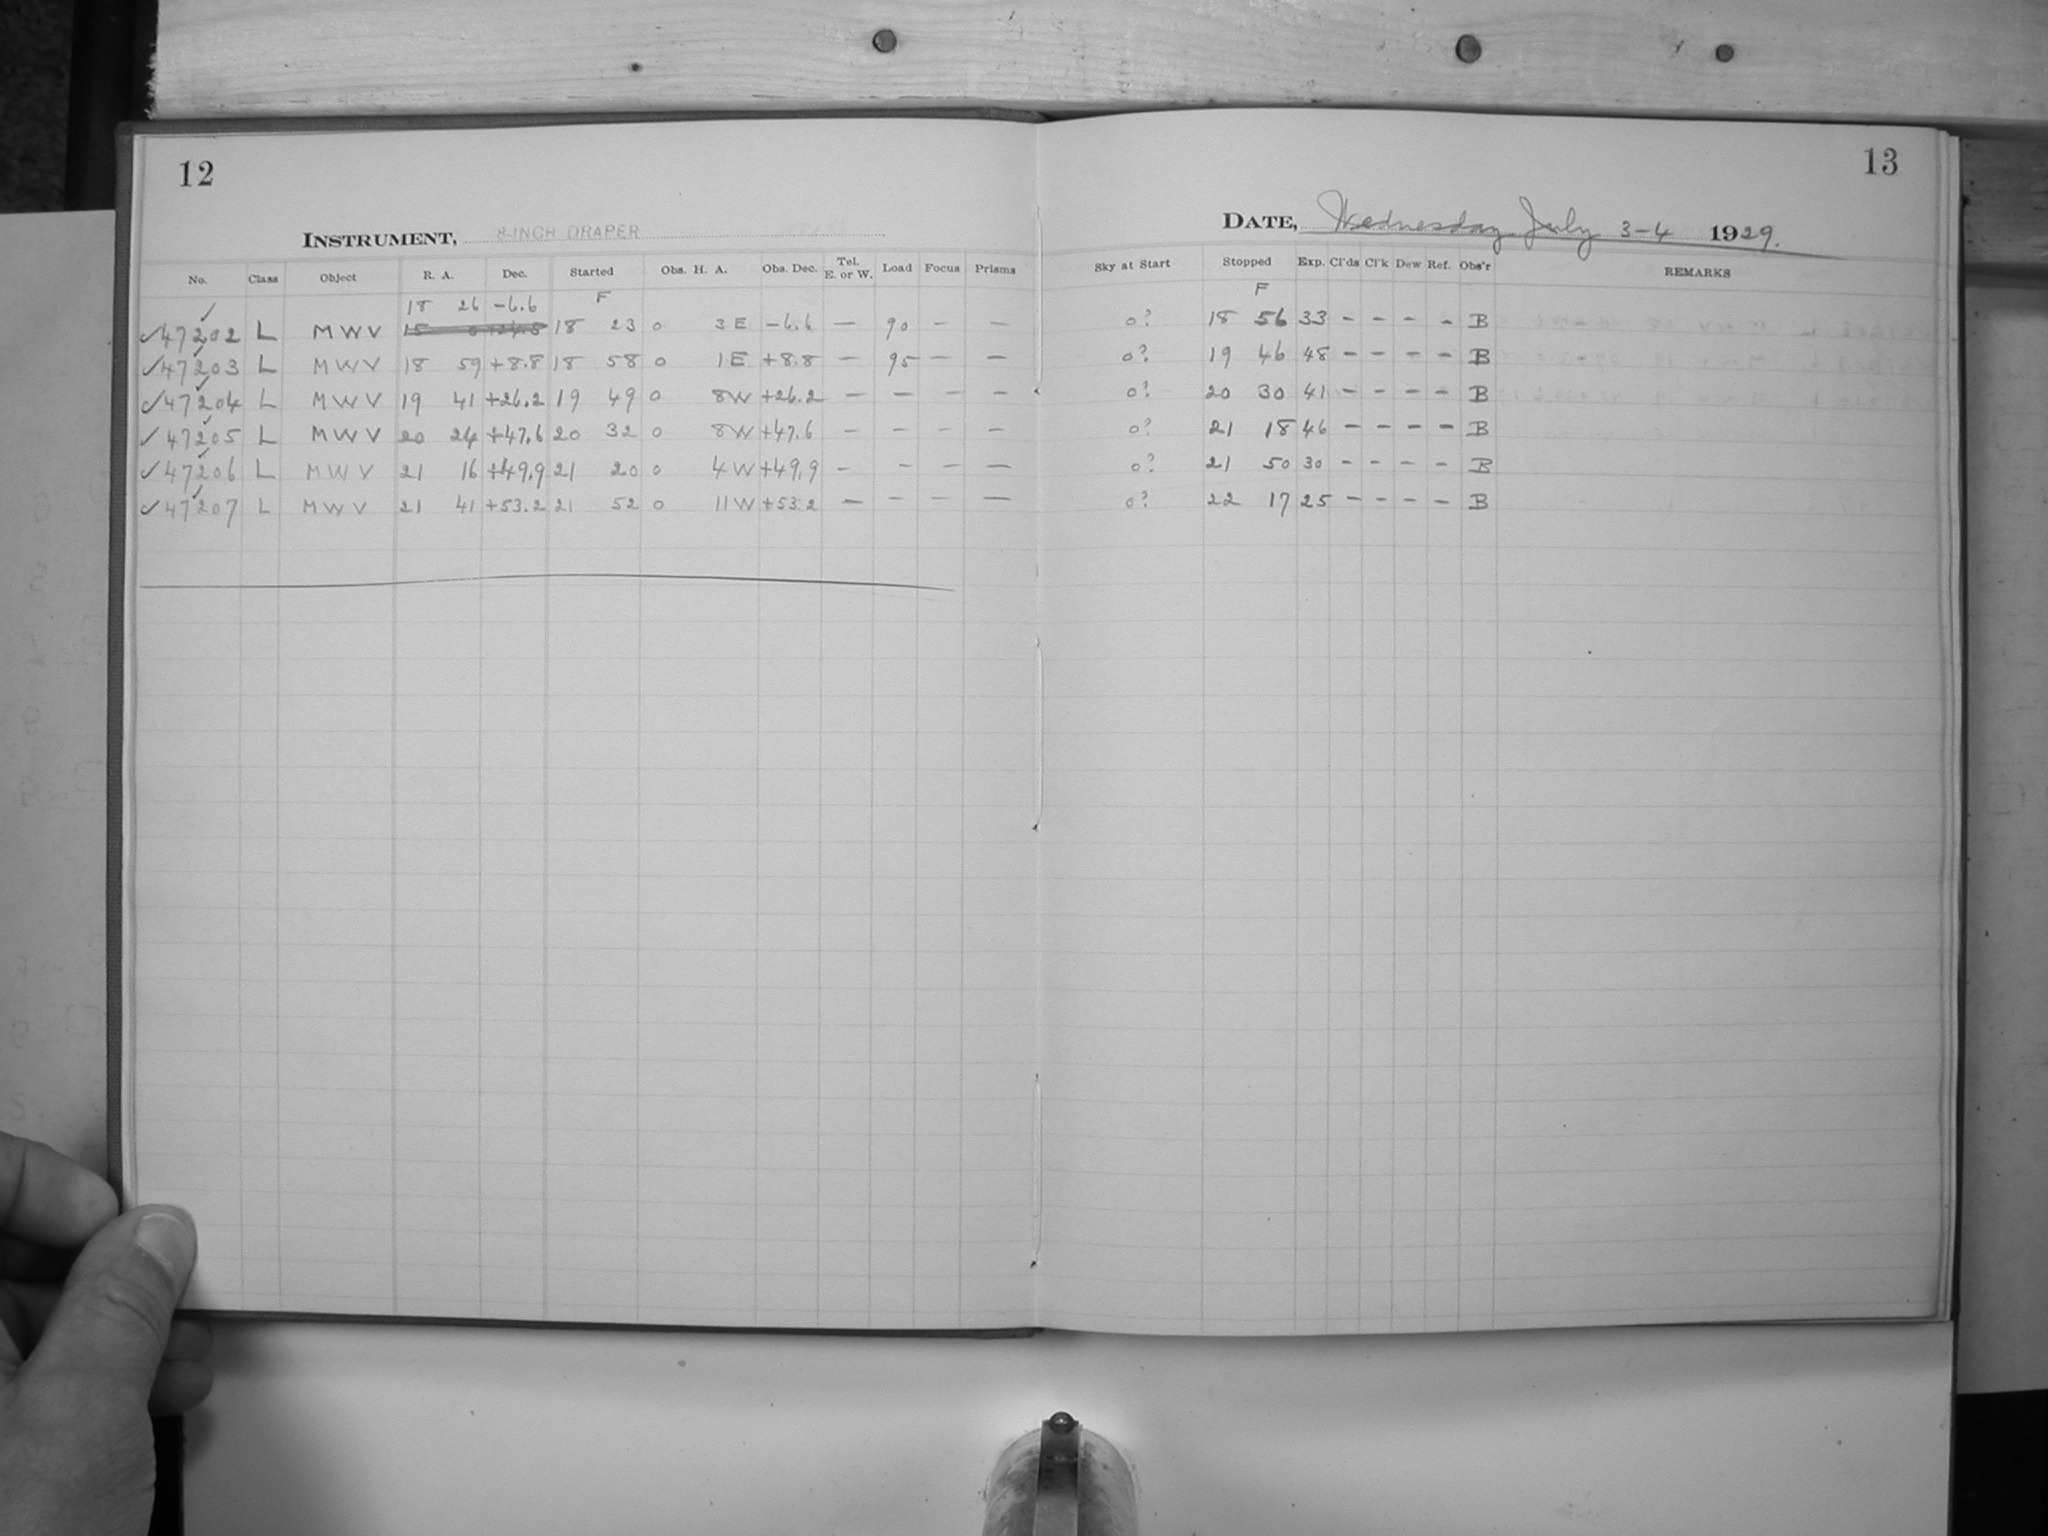 12
INSTRUMENT, 8-INCH DRAPER
No. Class Object R. A. Dec. Started Obs. H. A. Obs. Dec. Tel. E. or W. Load Focus Prisms
18 26 -6.6 F
✓47202 ✓ L MWV 18 23 0 3E -6.6 — 90 — —
✓47203 ✓ L MWV 18 59 +8.8 18 58 0 1E +8.8 — 95 — —
✓47204 ✓ L MWV 19 41 +26.2 19 49 0 8W +26.2 — — — —
✓47205 ✓ L MWV 20 24 +47.6 20 32 0 8W +47.6 — — — —
✓47206 ✓ L MWV 21 16 +49.9 21 20 0 4W +49.9 — — — —
✓47207 ✓ L MWV 21 41 +53.2 21 52 0 11W +53.2 — — — —
13
DATE, Wednesday July 3-4 1929.
Sky at Start Stopped Exp. Cl'ds Cl'k Dew Ref. Obs'r REMARKS
F
0? 18 56 33 — — — — B
0? 19 46 48 — — — — B
0? 20 30 41 — — — — B
0? 21 18 46 — — — — B
0? 21 50 30 — — — — B
0? 22 17 25 — — — — B